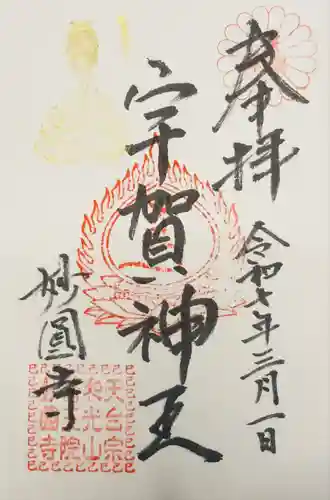 奉拝
令和七年三月一日
宇賀神王
妙圓寺
天台宗
和光山